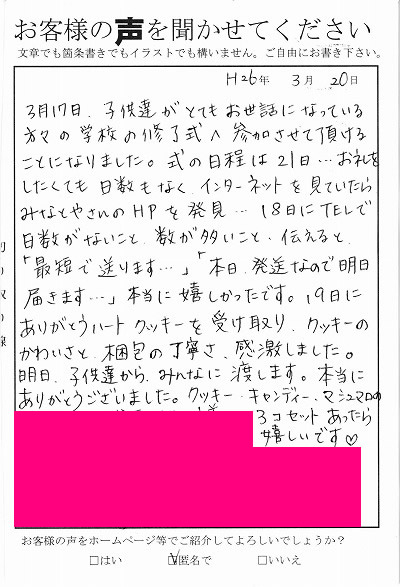 お客様の声を聞かせてください
文章でも箇条書きでもイラストでも構いません。ご自由にお書き下さい。
H26年 3月 20日
3月17日、子供達がとてもお世話になっている
方々の学校の修了式へ参加させて頂ける
ことになりました。式の日程は21日…お礼を
したくても日数もなく、インターネットを見ていたら
みなとやさんのHPを発見…18日にTELで
日数がないこと、数が多いこと、伝えると、
「最短で送ります…」「本日、発送なので明日
届きます…」本当に嬉しかったです。19日に
ありがとうハートクッキーを受け取り、クッキーの
かわいさと、梱包の丁寧さ、感激しました。
明日、子供達から、みんなに渡します。本当に
ありがとうございました。クッキー・キャンディー・マシュマロの
3コセットあったら
嬉しいです♡
お客様の声をホームページ等でご紹介してよろしいでしょうか？
□はい ☑匿名で □いいえ